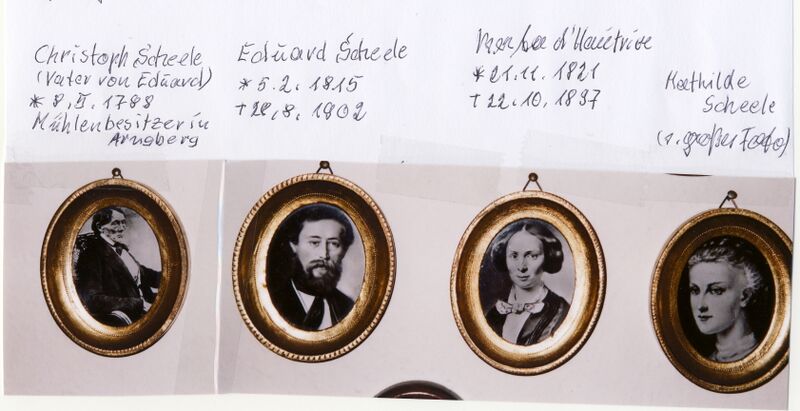 Christoph Scheele
(Vater von Eduard)
* 8, II. 1788
Mühlenbesitzer in
Arnsberg
Eduard Scheele
* 5.2. 1815
8. 1902
d'Hautrive
* 21.11. 1821
† 22.10. 1897
Mathilde
Scheele
(s. großes Foto)